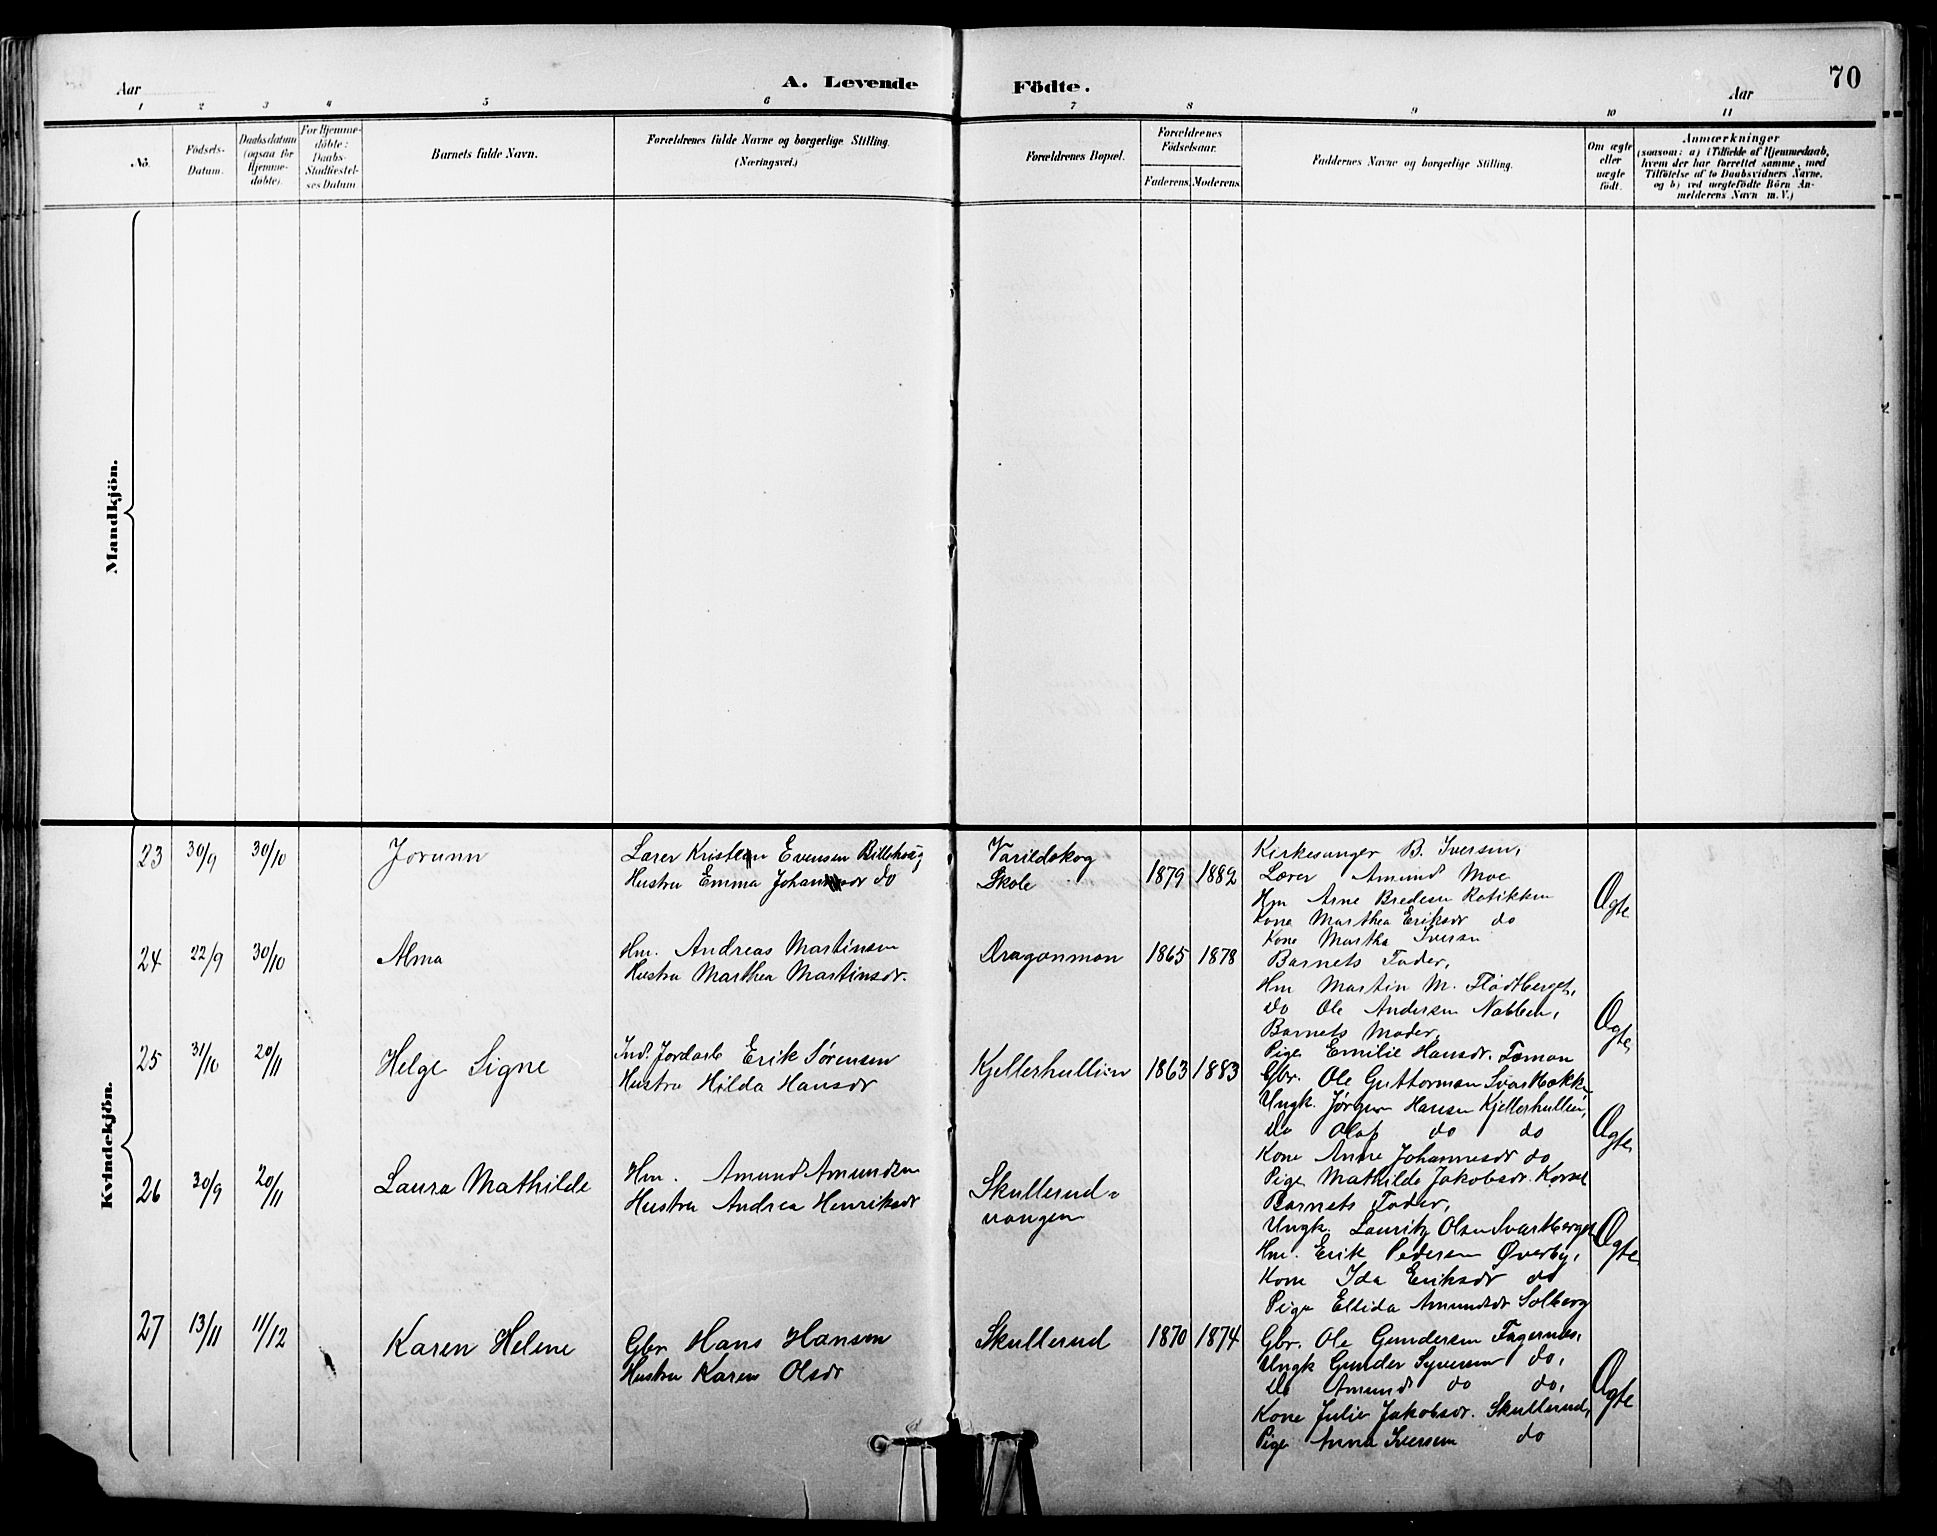 70
Aar
A. Levende Födte.
Aar
1 2 3 4 5 6 7 8 9 10 11
No.
Födsels-
Datum.
Daabsdatum
(ogsaa for
Hjemme-
döbte).
For Hjemme-
döbte:
Daabs-
Stadfæstel-
ses Datum
Barnets fulde Navn.
Forældrenes fulde Navne og borgerlige Stilling.
(Næringsvei.)
Forældrenes Bopæl.
Forældrenes
Födselsaar.
Faderens. Moderens.
Faddernes Navne og borgerlige Stilling.
Om ægte
eller
uægte
födt.
Anmærkninger
(saasom: a) i Tilfælde af Hjemmedaab,
hvem der har forrettet samme, med
Tilföielse af to Daabsvidners Navne,
og b) ved uægtefödte Börn An-
melderens Navn m. V.)
Mandkjön.
Kvindekjön.
23 30/9 30/10 Jorunn
Lærer Kristian Evensen Billehaug
Hustru Emma Johansdr do
Varildskog
Skole
1879 1882
Kirkesanger B. Iversen,
Lærer Amund Moe
Hm Arne Bredesen Rotikken
Kone Marthea Eriksdr do
Kone Martha Iversen
Ægte
24 22/9 30/10 Alma
Hm. Andreas Martinsen
Hustru Marthea Martinsdr.
Dragonmon
1865 1878
Barnets Fader,
Hm Martin M. Flodtberget,
do Ole Andersen Nabben,
Barnets Moder,
Pige Emilie Hansdr. Toman
Ægte
25 31/10 20/11 Helge Signe
Ind. Jordarb Erik Sørensen
Hustru Hilda Hansdr
Kjellerhullien
1863 1883
Gbr. Ole Guttormsen Svartbækk
Ungk. Jørgen Hansen Kjellerhullien,
do Olaf do do
Kone Anne Johannesdr do
Pige Mathilde Jakobsdr. Korsel
Ægte
26 30/9 20/11 Laura Mathilde
Hm. Amund Amundsen
Hustru Andrea Henriksdr
Skullerud-
vangen
Barnets Fader,
Ungk. Lauritz Olsen Svartberget
Hm. Erik Pedersen Øverby,
Kone Ida Eriksdr do
Pige Ellida Amundsdr Solberg
Ægte
27 13/11 11/12 Karen Helene
Gbr Hans Hansen
Hustru Karen Olsdr
Skullerud
1870 1874
Gbr. Ole Gundersen Fagernes,
Ungk Gunder Syversen do,
do Amund do do,
Kone Julie Jakobsdr. Skullerud,
Pige Anna Iversen do
Ægte